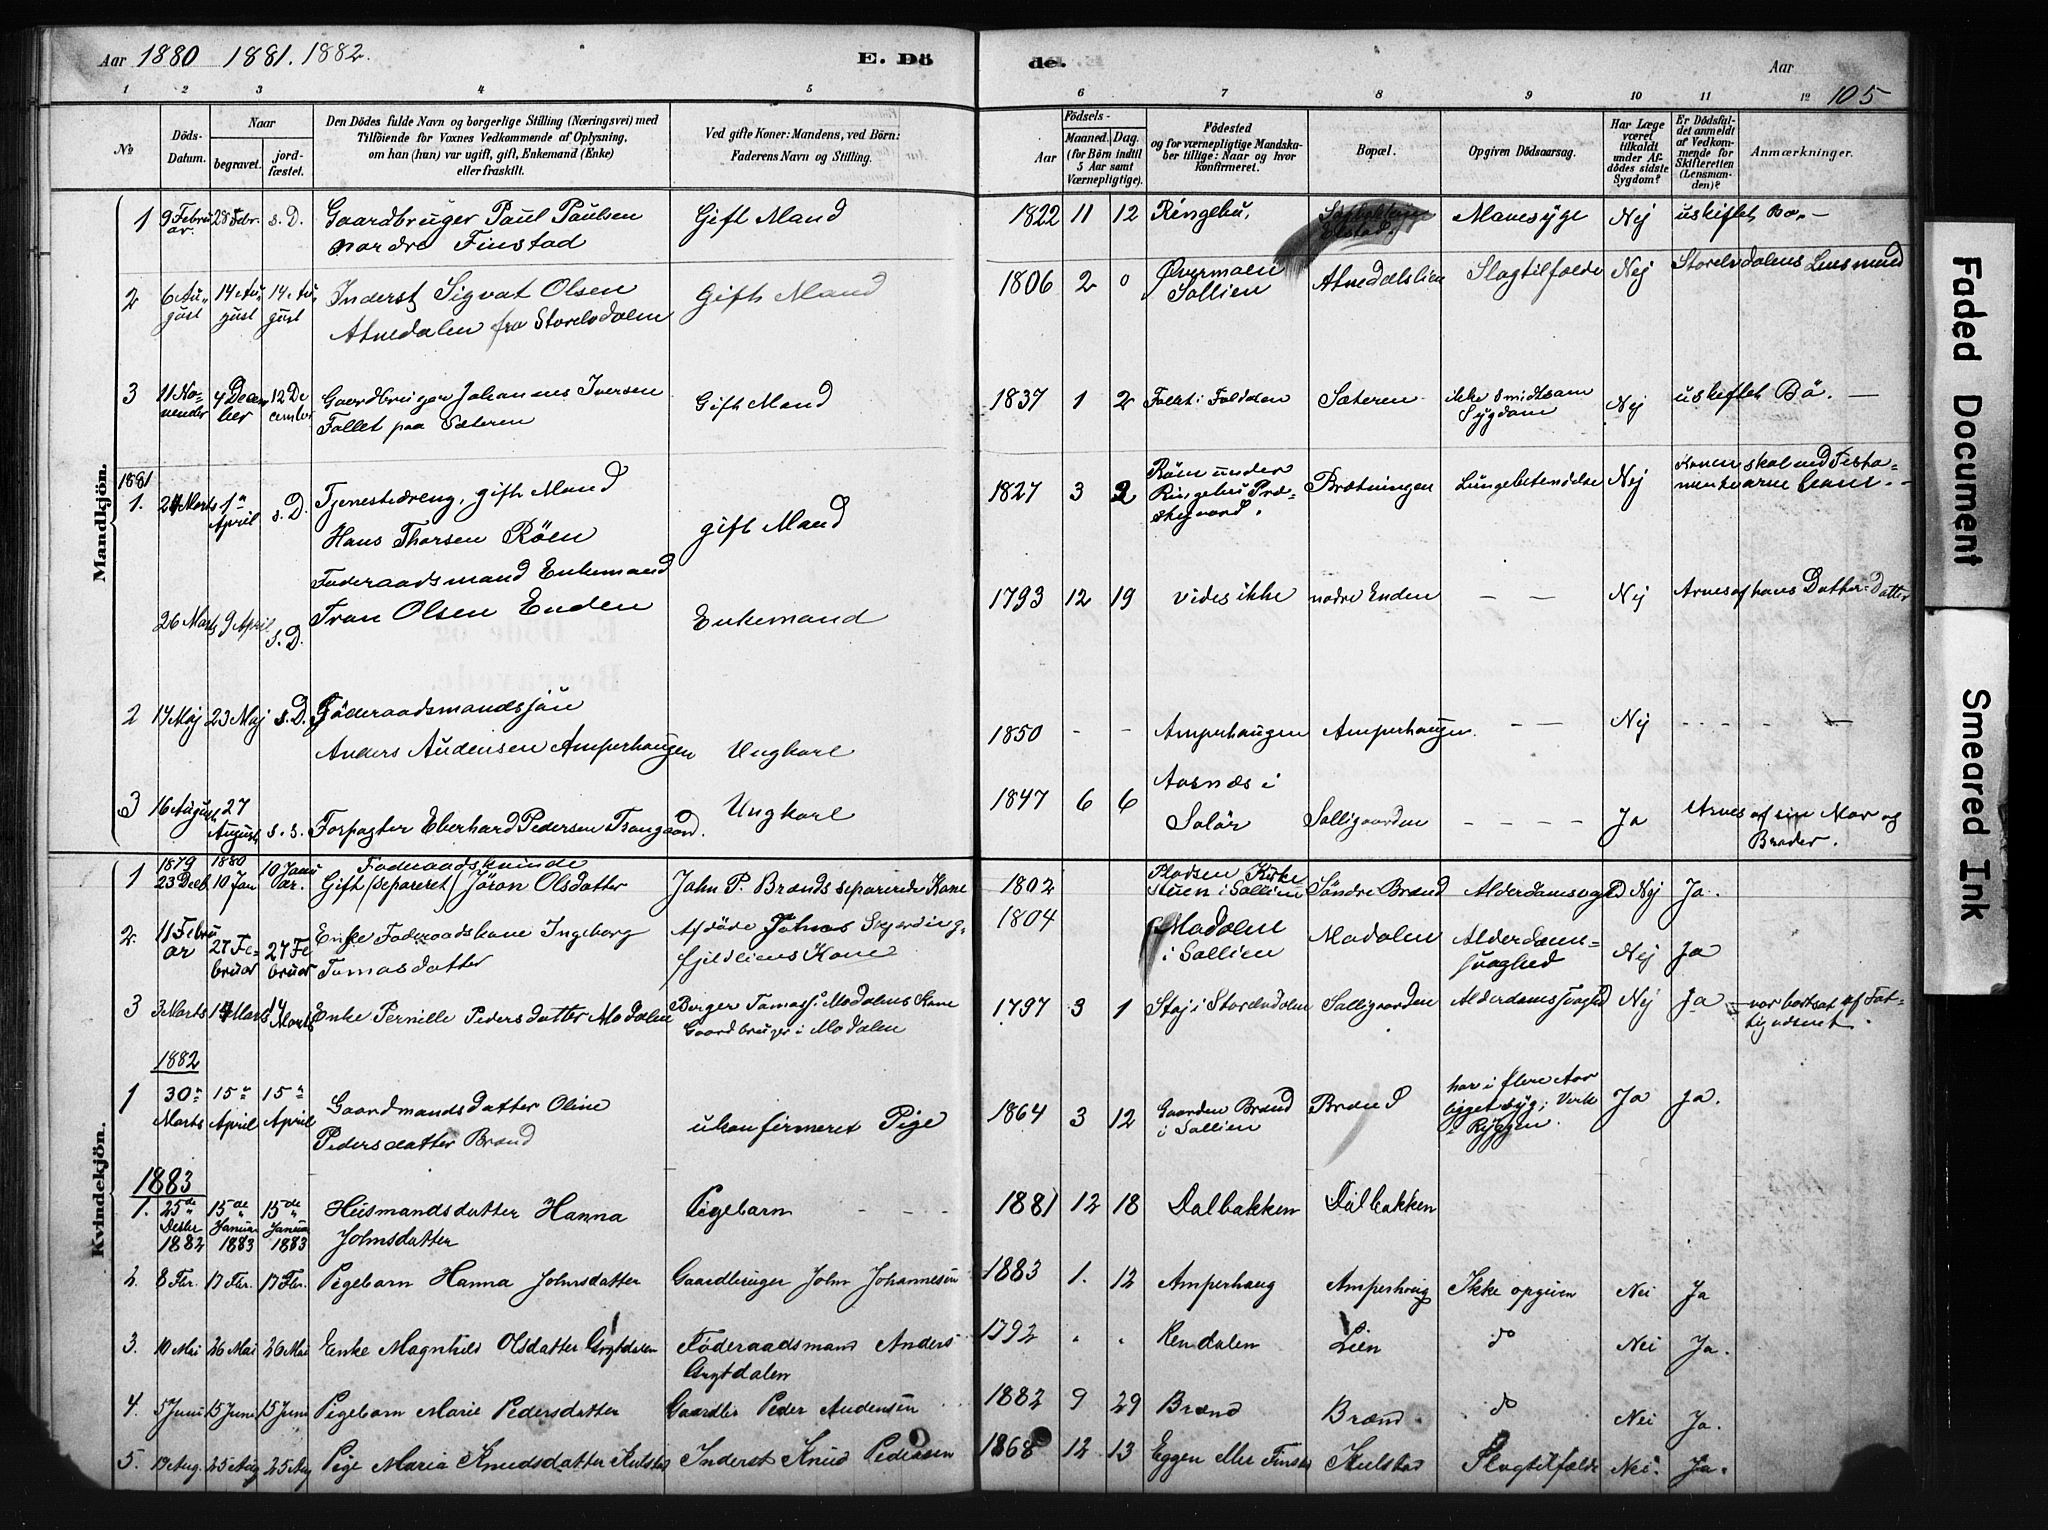 Aar 1880 1881. 1882. E. Dö de. Aar 105
1 2 3 4 5 6 7 8 9 10 11 12
№ Döds-Datum. Naar begravet. jordfæstet.
Den Dödes fulde Navn og borgerlige Stilling (Næringsvei) med
Tilföiende for Voxnes Vedkommende af Oplysning,
om han (hun) var ugift, gift, Enkemand (Enke)
eller fraskilt.
Ved gifte Koner: Mandens, ved Börn:
Faderens Navn og Stilling.
Födsels-
Aar Maaned. Dag.
(for Börn indtil
5 Aar samt
Værnepligtige).
Födested
og for værnepligtige Mandska-
ber tillige: Naar og hvor
Konfirmeret.
Bopæl.
Opgiven Dödsaarsag.
Har Læge
været
tilkaldt
under Af-
dödes sidste
Sygdom?
Er Dödsfal-
det anmeldt
af Vedkom-
mende for
Skifteretten
(Lensman-
den)?
Anmærkninger.
Mandkjön.
1 9 Febru ar. 28 Febr. s. D. Gaardbruger Paul Paulsen Gift Mand 1822 11 12 Ringebu. Elstad. Mavesyge Nej uskiftet Bo. —
nordre Finstad
2 6 Au- gust 14 Au- gust 14 Au- gust Inderst Sigvat Olsen Gift Mand 1806 2 0 Øvermoen Sollien Atnedalslien Slagtilfælde Nej Storelvdalens Lensmand
Atnedalen fra Storelvdalen
3 11 No- vember 4 Decem ber 12 De cember Gaardbruger Johannes Iversen Gift Mand 1837 1 2 Foldalen Sæteren ikke smidtsom Sygdom Nej uskiftet Bö. —
Fallet paa Sæteren
1881
1. 24 Marts 1ste April s. D. Tjenestedreng, gift Mand gift Mand 1827 3 2 Röen under Ringebu Præ- stegaard. Brætningen Lungebetendelse Nej Konen skal ved Testa- mente arve ham. —
Hans Thorsen Röen
Foderaadsmand Enkemand
26 Marts 9 April s. D. Tron Olsen Enden Enkemand 1793 12 19 vides ikke nodre Enden — — Nej Arves af hans Datter-Datter
2 14 Maj 23 Maj s. D. Föderaadsmandssön
Anders Audensen Amperhaugen Ungkarl 1850 - - Amperhaugen Amperhaugen. — — Nej - - - -
3 16 August 27 August s. s. Forpagter Eberhard Pedersen Ungkarl 1847 6 6 Aasnæs i Solör Solligaarden - - - - Ja Arves af sin Mor og Broder.
Kvindekjön.
1 1879 23 Decb. 1880 10 Jan 10 Janu ar. Foderaadskvinde
Gift /separeret/ Jöran Olsdatter John P. Brænds separerede Kone 1802 Pladsen Kirke stuen i Sollien Søndre Brænd Alderdomssvaghed Nej Ja.
2. 11 Febru ar 27 Fe- bruar 27 Fe bruar Enke Foderaadskone Ingeborg Tomasdatter Afdöde Johnas fjeldliens Kone 1804 Modalen i Sollien Modalen Alderdoms- svaghed Nej Ja
3 3 Marts 14 Marts 14 Marts Enke Pernille Pedersdatter Modalen Borger Tomass. Modalens Kone Gaardbruger i Modalen 1797 3 1 Staj i Storelvdalen Solligaarden Alderdomssvaghed Nej Ja — var bortsat af Fat- tigvæsenet.
1882
1 30te Marts 15de April 15de April Gaardmandsdatter Oline Pedersdatter Brænd ukonfirmeret Pige 1864 3 12 Gaarden Brænd i Sollien Brænd har i flere Aar ligget syg; Verk i Ryggen. Ja Ja.
1883
1. 25de Decbr 1882 15de Januar 1883 15de Januar 1883 Husmandsdatter Hanna Johnsdatter Pigebarn - - - 1881 12 18 Dalbakken Dalbakken
2. 8 Fbr. 17 Fbr. 17 Fbr. Pigebarn Hanna Johnsdatter Gaardbruger John Johannesen 1883 1. 12 Amperhaug Amperhaug Ikke opgiven Nei Ja
3. 10 Mai 26 Mai 26 Mai Enke Magnhild Olsdatter Grytdalen Föderaadsmand Anders Grytdalen 1792 " " Rendalen Lien do Nei Ja.
4. 5 Juni 15 Juni 15 Juni Pigebarn Marie Pedersdatter Gaardbr Peder Audensen 1882 9 29 Brænd Brænd do Nei Ja.
5. 19 Aug. 25 Aug 25 Aug Pige Maria Knudsdatter Kulstad Inderst Knud Pedersen 1868 12 13 Eggen Kulstad Slagtilfælde Nei. Ja.
Faded Document
Smeared Ink